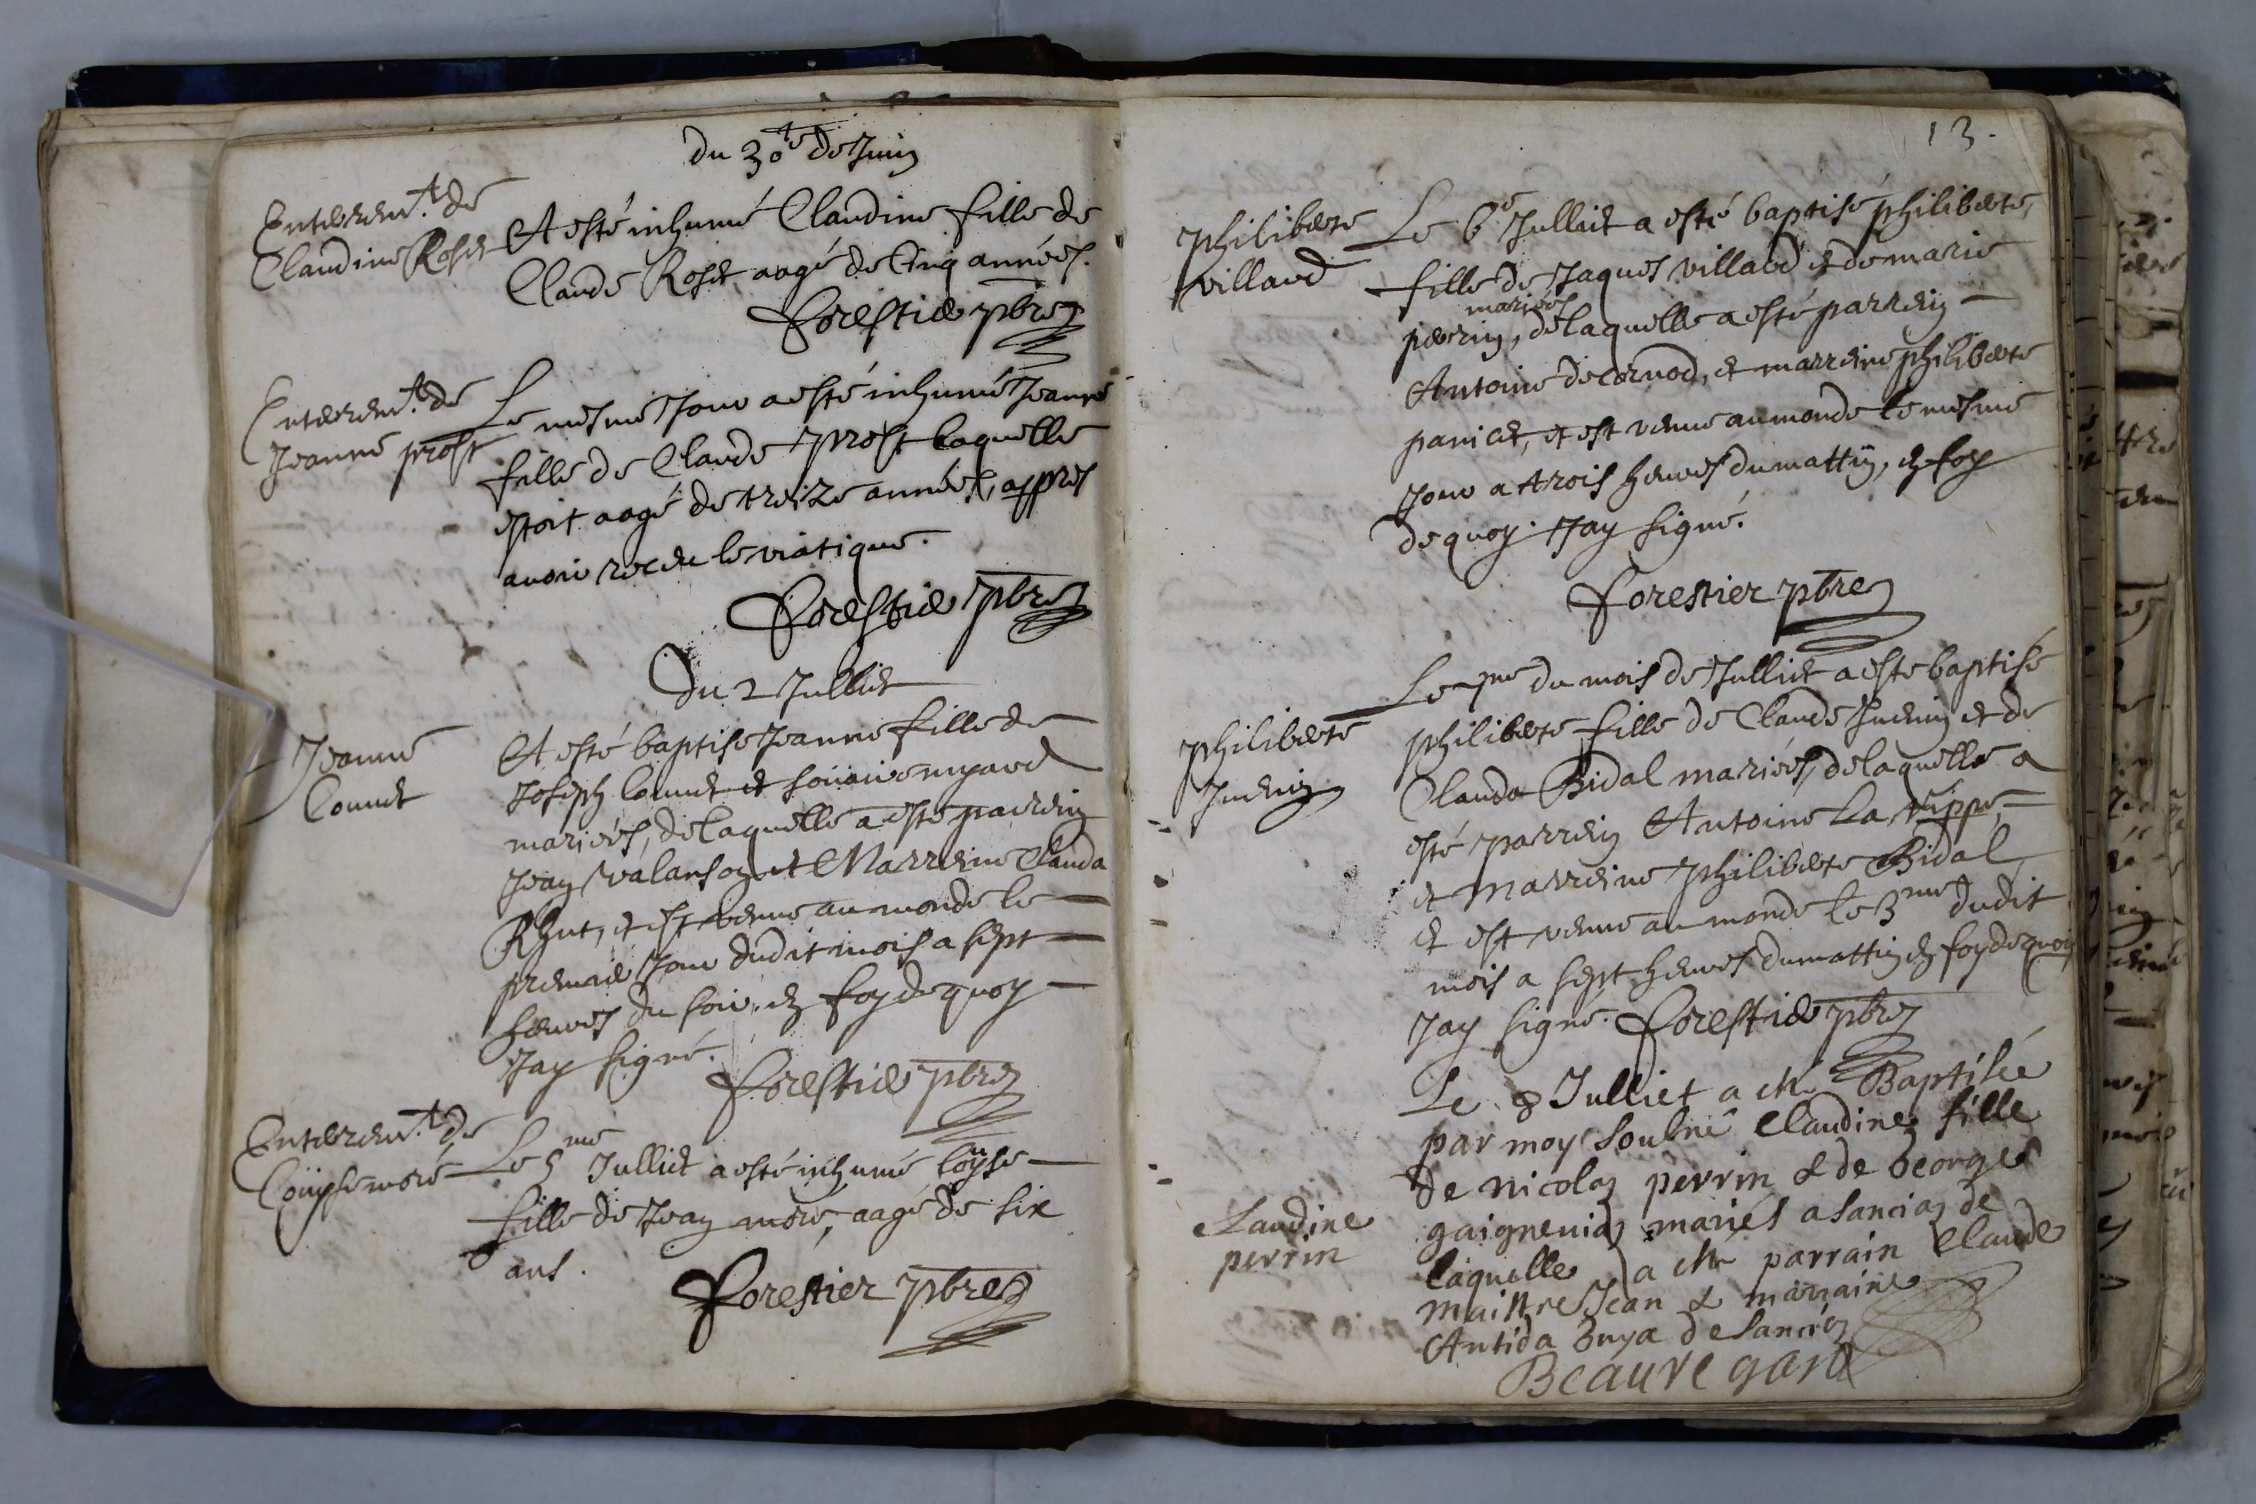 du 30te de Juin
Enterremt. de
Claudine Roset
A esté inhumé Claudine fille de
Claude Roset aagé de Cinq années.
Forestier pbre
Enterremt. de
Jeanne prost
Le mesme Jour a esté inhumé Jeanne
fille de Claude prost laquelle
estoit aagé de treize années, appres
auoir receu le viatique.
Forestier pbre
Du 2 Julliet
Jeanne
Connet
A esté baptise Jeanne fille de
Joseph Connet et
mariés, de laquelle a esté parrein
Jean valanson et Marreine Clauda
Rhut, et est venue au monde le
premier Jour dudit mois a sept
heures du soir, en foy de quoy
Jay signé.
Forestier pbre
Enterremt. de
Louyse moré
Le 5me Julliet a esté inhumé Louyse
fille de Jean moré, aagé de six
ans.
Forestier pbre
13.
philiberte
villard
Le 6e Julliet a esté baptisé philiberte,
fille de Jaques villard et de marie
mariés
perrin, de laquelle a esté parrein
Antoine decornod, et marreine philiberte
panict, et est venue au monde le mesme
Jour a trois heures du mattin, en foy
de quoy Jay signé.
Forestier pbre
philiberte
Juenin
Le 7me du mois de Julliet a esté baptisé
philiberte fille de Claude Juenin et de
Clauda Bidal mariés, de laquelle a
esté parrein Antoine La Nippe,
et marreine philiberte Bidal
et est venue au monde le 3me dudit
mois a sept heures du mattin en foy de quoy
Jay signé. Forestier pbre
Claudine
perrin
Le 8 Julliet a esté Baptisée
par moy soubné Claudine fille
de nicolas perrin & de george
gaignenia mariés a sancia de
laquelle a esté parrain Claude
maistre Jean & marraine
Antida buya de sancia
Beauregard